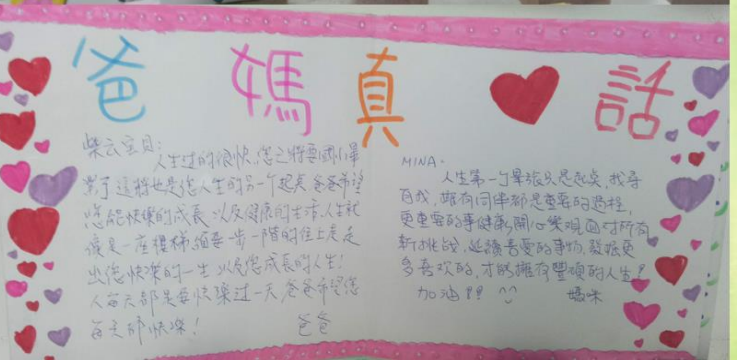 爸 媽 真 話
柴云宝贝:
人生过的很快,您之将要國小畢
業了這將也是您人生的另一个起点,爸爸希望
您能快樂的成長以及健康的生活.人生就
像是一座樓梯須要一步一階的往上走走
出您快樂的一生以及您成長的人生!
人每天都是要快樂过一天,爸爸希望您
每天都快樂!
爸爸
MINA.
人生第一个畢業只是起点,找尋
自我,擁有同伴都是重要的過程,
更重要的事健康,開心樂觀面對所有
新挑战,延續喜愛的事物,發掘更
多喜欢的,才能擁有豐碩的人生!
加油!! ^^
媽咪